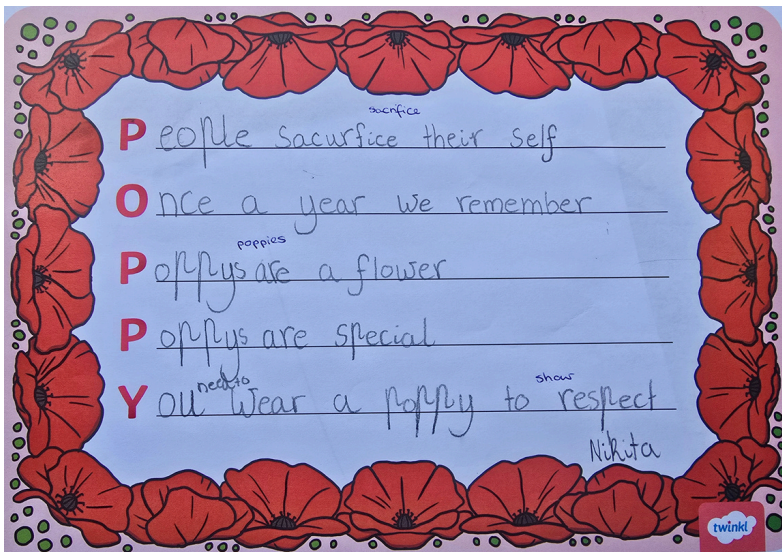 sacrifice
People sacurfice their self
Once a year we remember
poppies
Poppys are a flower
Poppys are special
need to show
You Wear a poppy to respect
Nikita
twinkl